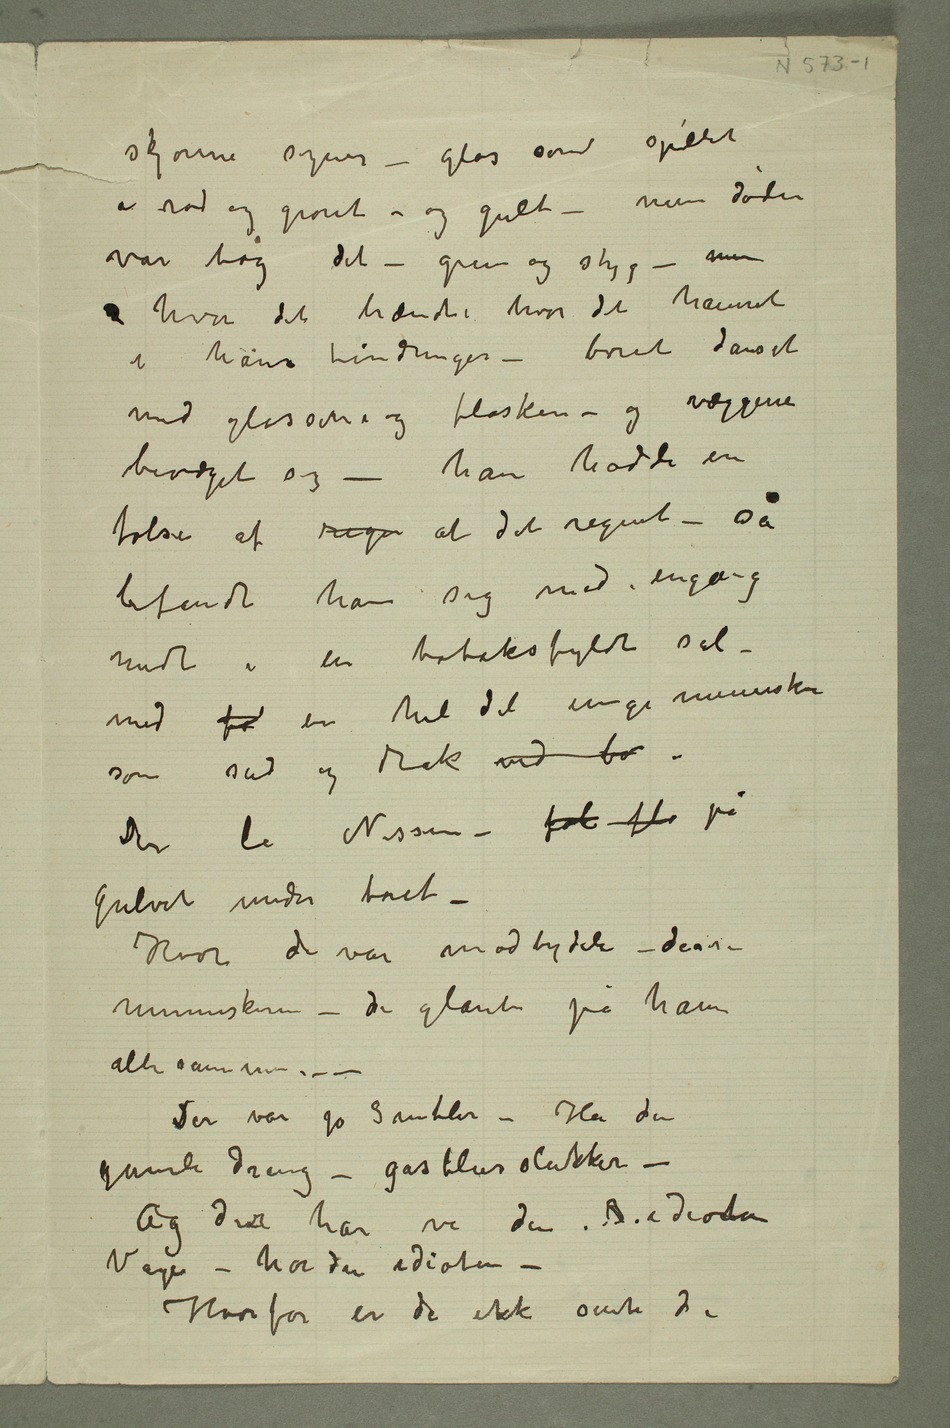 N 573-1
skjønne syner – glas som spillet
i rød og grønt – og gult – men døden
var bag det – grim og styg – men
hvor det brændte hvor det hamret
i hans tindinger – boret danset
med glassene og flasken – og væggene
bevæget sig — han hadde en
følse af regn at det regnet – så
befandt han sig med engang
midt i en tobaksfyldt sal –
med fo en hel del unge mennesker
som sad og drak ved bo –
Der lå Nissen – på
gulvet under boret –
Hvor de var modbydele – disse
menneskene – de glante på ham
alle sammen. – –
Der var jo – Ha den
gamle dreng – gasblusslukker —
Og der har vi den idioten
– hør du idioten –
Hvorfor er de ikk de